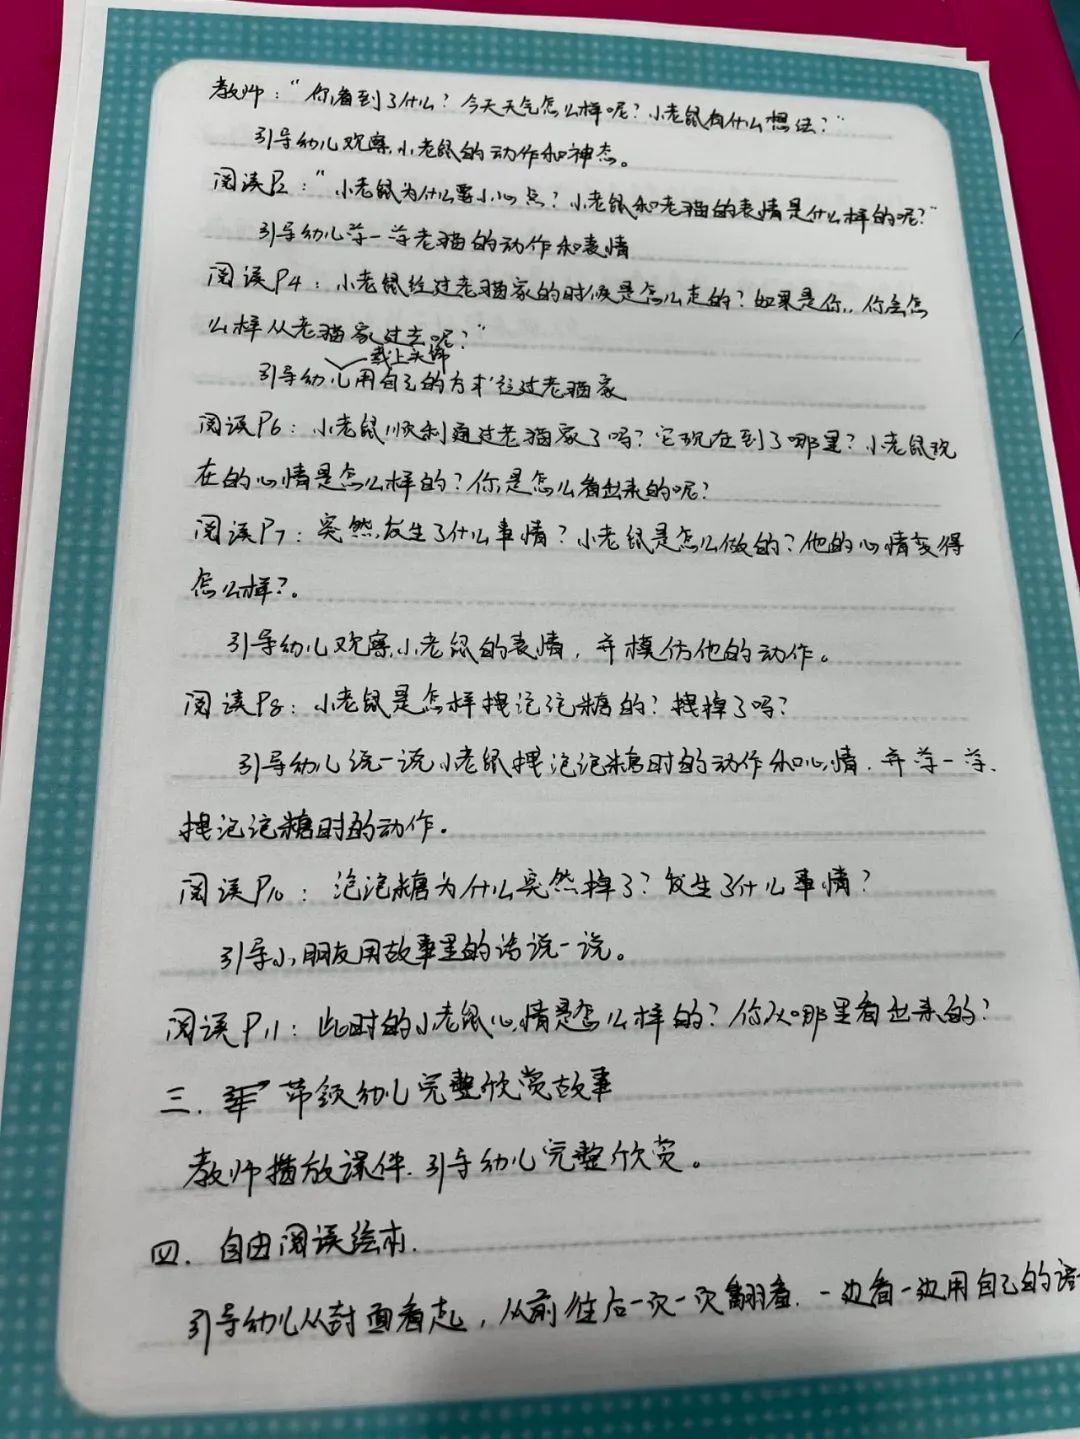 教师：“你看到了什么？今天天气怎么样呢？小老鼠有什么想法？”
引导幼儿观察小老鼠的动作和神态。
阅读P2：“小老鼠为什么要小心点？小老鼠和老猫的表情是什么样的呢？”
引导幼儿学一学老猫的动作和表情
阅读P4：小老鼠经过老猫家的时候是怎么走的？如果是你，你会怎
么样从老猫家过去呢？”
戴上头饰
引导幼儿用自己的方式经过老猫家
阅读P6：小老鼠顺利通过老猫家了吗？它现在到了哪里？小老鼠现
在的心情是怎么样的？你是怎么看出来的呢？
阅读P7：突然发生了什么事情？小老鼠是怎么做的？他的心情变得
怎么样？。
引导幼儿观察小老鼠的表情，并模仿他的动作。
阅读P8：小老鼠是怎样拽泡泡糖的？拽掉了吗？
引导幼儿说一说小老鼠拽泡泡糖时的动作和心情.并学一学.
拽泡泡糖时的动作.
阅读P10：泡泡糖为什么突然掉了？发生了什么事情？
引导小朋友用故事里的话说一说。
阅读P11：此时的小老鼠心情是怎么样的？你从哪里看出来的？
三. 带领幼儿完整欣赏故事
教师播放课件.引导幼儿完整欣赏。
四. 自由阅读绘本.
引导幼儿从封面看起，从前往后一次一次翻看.一边看一边用自己的语